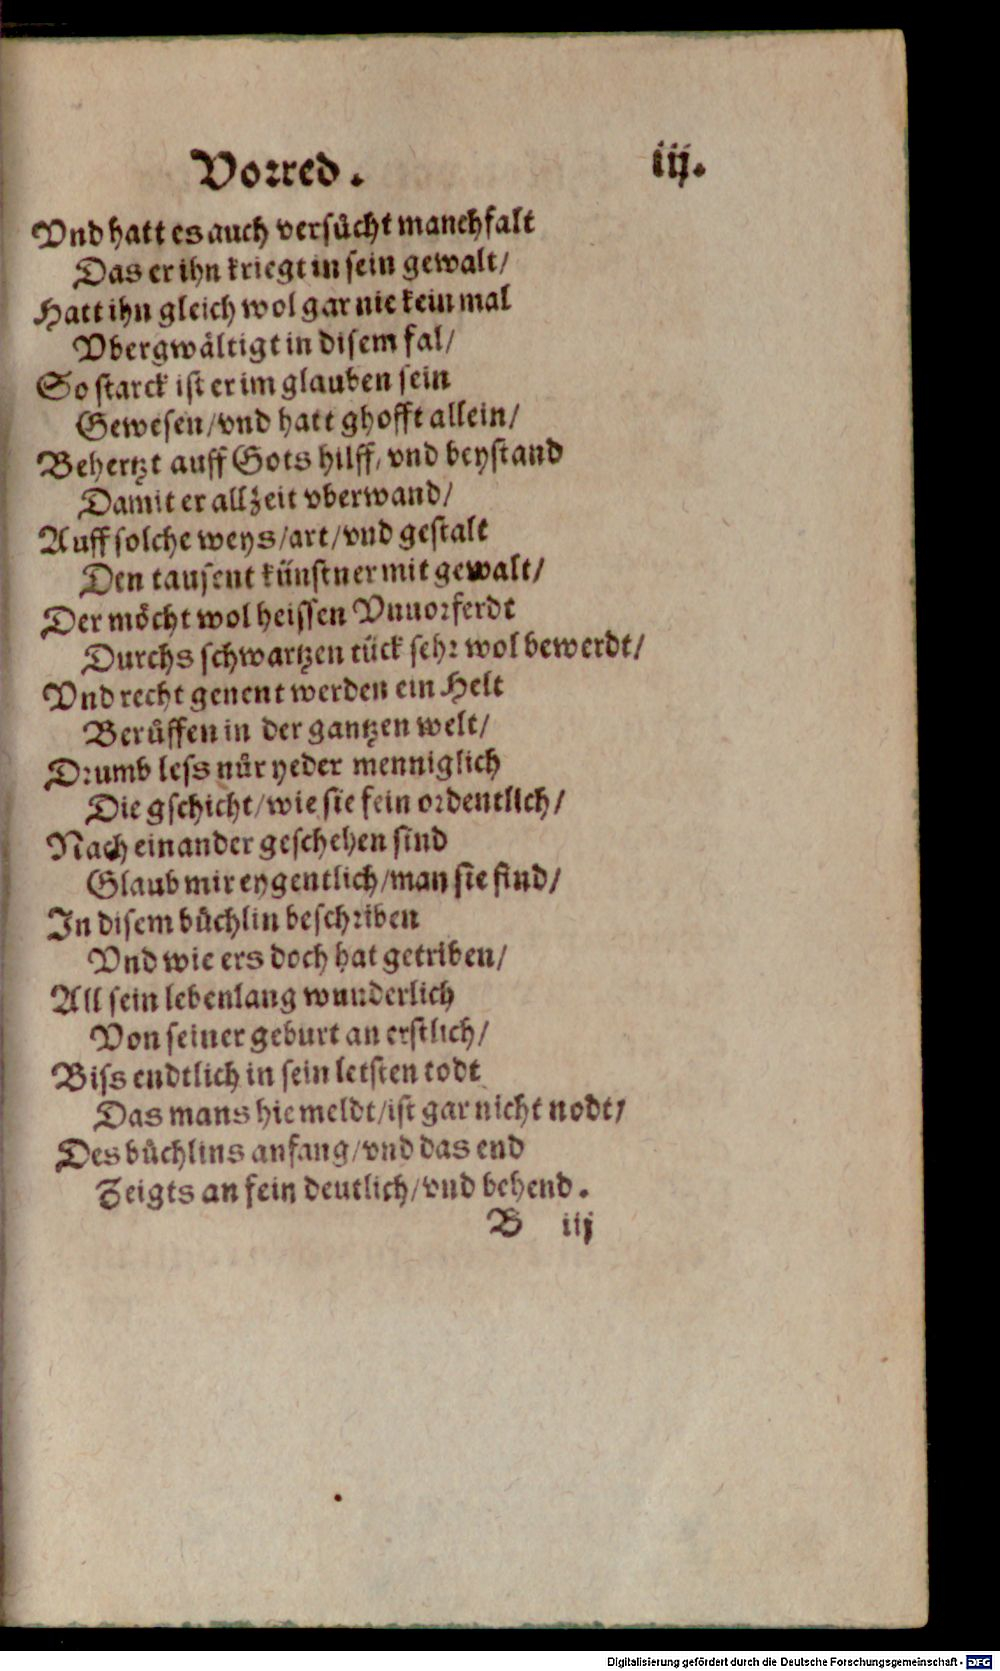 Vorred.
iij.
Vnd hatt es auch versůcht manchfalt
Das er ihn kriegt in sein gewalt/
Hatt ihn gleich wol gar nie kein mal
Vbergwältigt in disem fal/
So starck ist er im glauben sein
Gewesen/vnd hatt ghofft allein/
Behertzt auff Gots hilff/ vnd beystand
Damit er allzeit vberwand/
Auff solche weys/art/vnd gestalt
Den tausent künstner mit gewalt/
Der möcht wol heissen Vnuorferdt
Durchs schwartzen tück sehr wol bewerdt/
Vnd recht genent werden ein Helt
Berůffen in der gantzen welt/
Drumb less nůr yeder menniglich
Die gschicht/wie sie fein ordentlich/
Nach einander geschehen sind
Glaub mir eygentlich/man sie find/
In disem bůchlin beschriben
Vnd wie ers doch hat getriben/
All sein lebenlang wunderlich
Von seiner geburt an erstlich/
Biss endtlich in sein letsten todt
Das mans hie meldt/ist gar nicht nodt/
Des bůchlins anfang/vnd das end
Zeigts an fein deutlich/vnd behend.
B iij
Digitalisierung gefördert durch die Deutsche Forschungsgemeinschaft - DFG